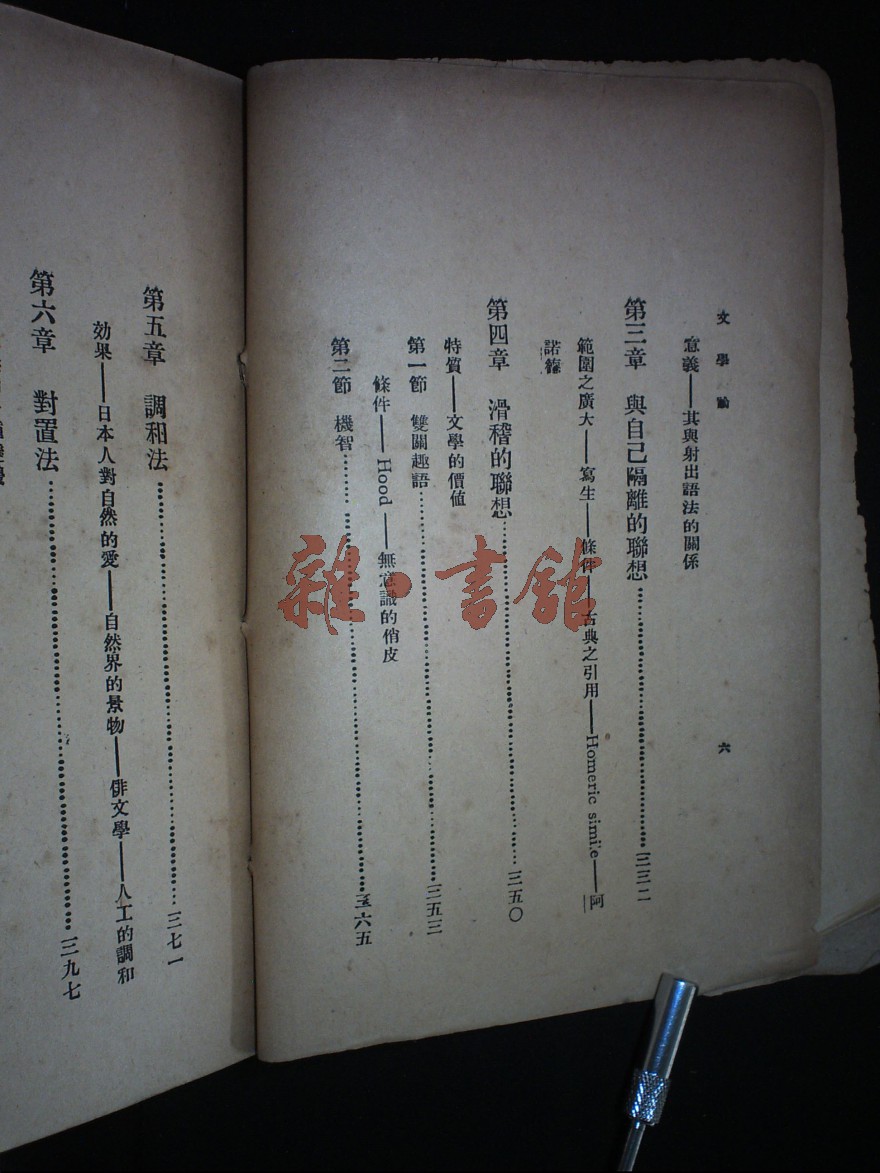 文學論
六
意義——其與射出語法的關係
第三章 與自己隔離的聯想……三三二
範圍之廣大——寫生——條件——古典之引用——Homeric simile——阿
諾德
第四章 滑稽的聯想……三五〇
特質——文學的價值
第一節 雙關趣語……三五三
條件——Hood——無意識的俏皮
第二節 機智……三六五
第五章 調和法……三七一
効果——日本人對自然的愛——自然界的景物——俳文學——人工的調和
第六章 對置法……三九七
雜·書館